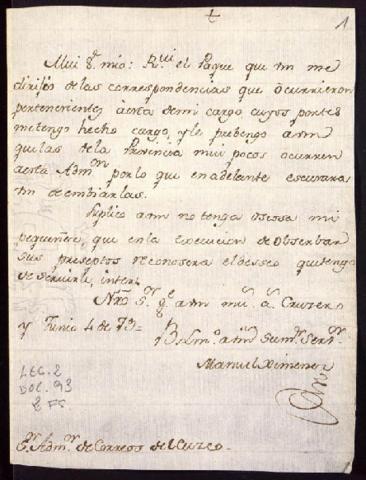 1
Mui S.r mio: R.vi el Paque que vm me
dirijio de las correspondencias que ocurrieron
pertenecientes a esta de mi cargo cuyos portes
me tengo hecho cargo, y le prebengo a vm
que las de la Provincia mui pocos ocurren
a esta Adm.on por lo que en adelante escusara
vm de embiarlas.
Suplico a vm no tenga osiosa mi
pequeñez, que en la execucion de obserbar
sus preseptos reconosera el desseo que tengo
de servirle, interin
Nro S.r g.e a vm m.s a.s Cruzero
y Junio 4 de 73=
B. L. m.o a vm su m.r Serv.r
Manuel Ximenez
LEG. 2
DOC. 93
2 FF.
S.r Adm.or de Correos del Cuzco.